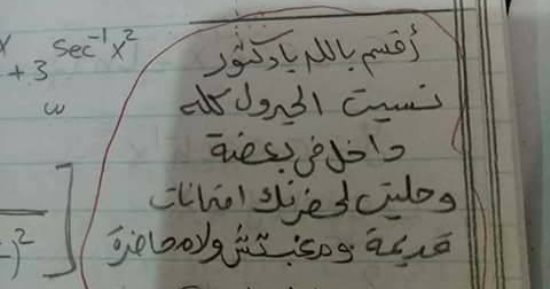 + 3 sec⁻¹ x²
أقسم بالله يا دكتور
نسيت الجدول كله
داخل فى بعضة
وحليت لحضرتك امتحانات
قديمة ومغبتش ولا محاضرة
)²